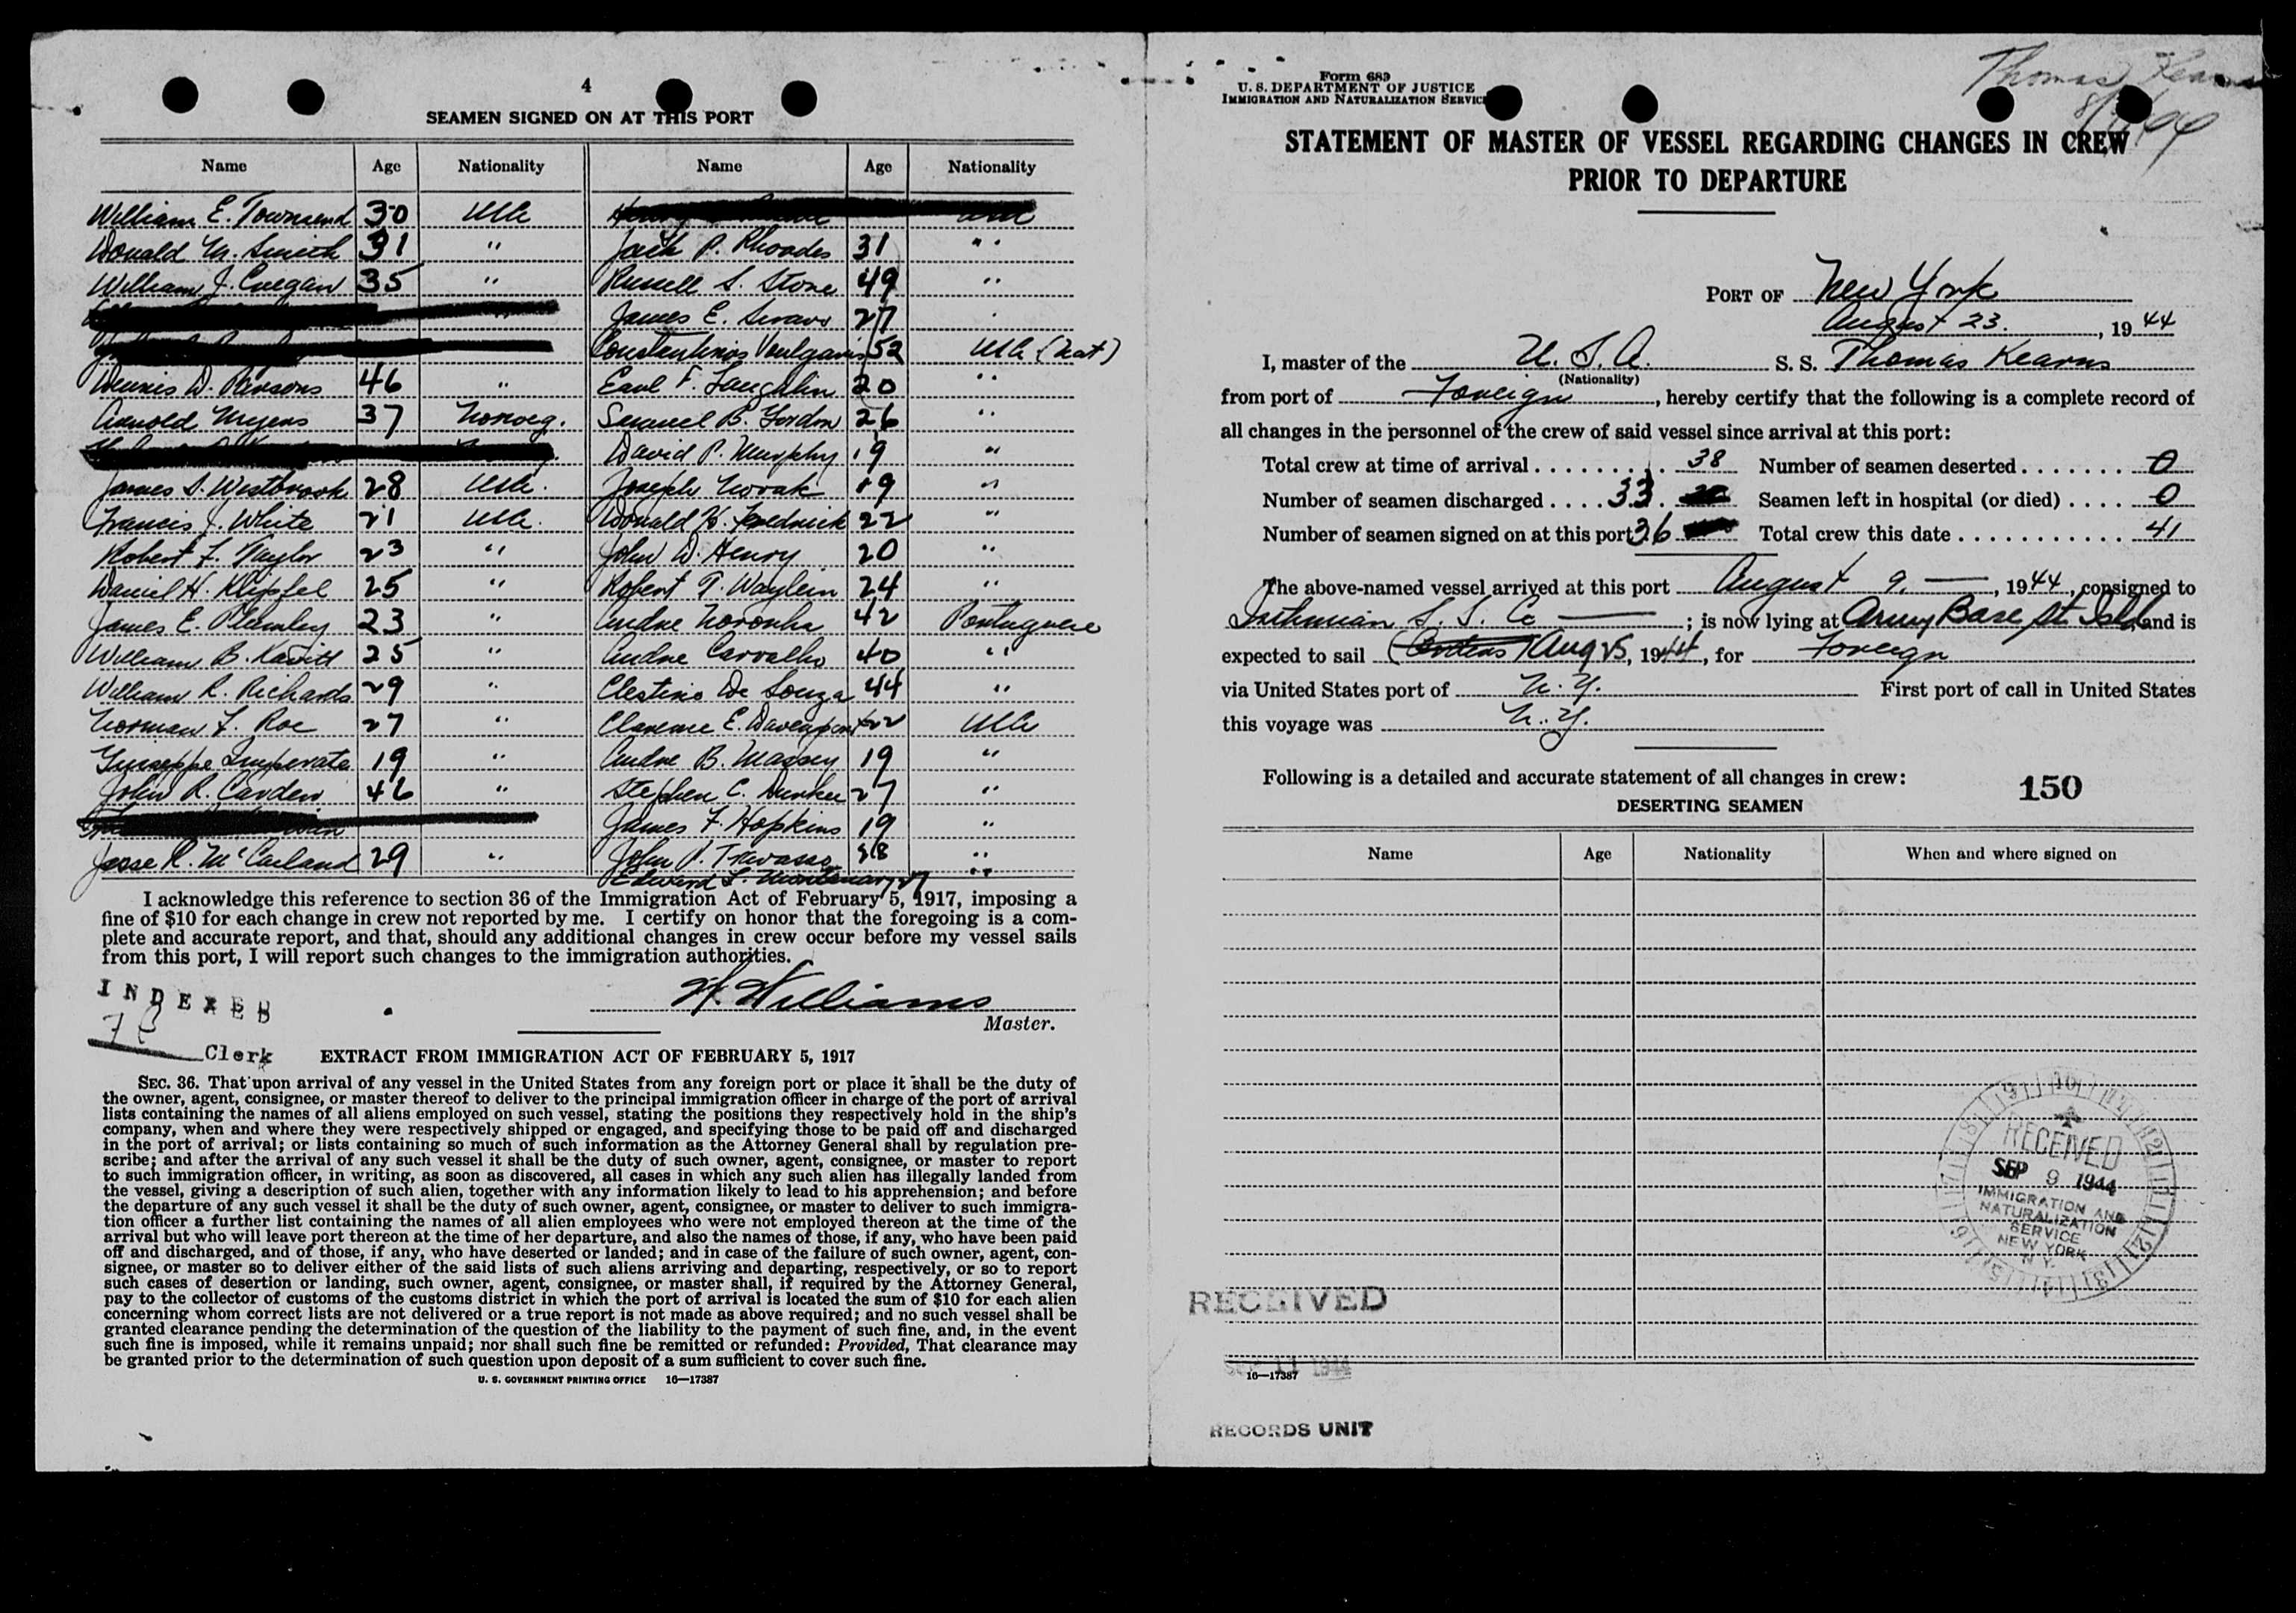 4
SEAMEN SIGNED ON AT THIS PORT
Name Age Nationality Name Age Nationality
William E. Townsend 30 USA
Donald M. Smith 31 " Jack P. Rhoades 31 "
William J. 35 " Russell S. Stone 49 "
James E. 27
Constantinos Voulgaris 52 USA (Nat)
Dennis D. Parsons 46 " Earl F. Laughlin 20 "
Arnold Myens 37 Norweg. Samuel B. Gordon 26 "
David P. Murphy 19 "
James S. Westbrook 28 USA. Joseph Novak 19 "
Francis J. White 21 USA. Donald H. 22 "
Robert F. 23 " John D. Henry 20 "
Daniel H. Klipfel 25 " Robert T. 24 "
James E. 23 " Andre Noronha 42 Portuguese
William B. 25 " Andre Carvalho 40 "
William R. Richards 29 " Clestino De Souza 44 "
Norman F. Roe 27 " Clarence E. Davenport 22 USA
Giuseppe Imperata 19 " Andre B. Massey 19 "
John R. Carden 46 " Stephen C. 27 "
James F. Hopkins 19 "
Jesse R. McCasland 29 " John P. "
Edward L. 27 "
I acknowledge this reference to section 36 of the Immigration Act of February 5, 1917, imposing a
fine of $10 for each change in crew not reported by me. I certify on honor that the foregoing is a com-
plete and accurate report, and that, should any additional changes in crew occur before my vessel sails
from this port, I will report such changes to the immigration authorities.
H. Williams
Master.
INDEXED
Clerk
EXTRACT FROM IMMIGRATION ACT OF FEBRUARY 5, 1917
SEC. 36. That upon arrival of any vessel in the United States from any foreign port or place it shall be the duty of
the owner, agent, consignee, or master thereof to deliver to the principal immigration officer in charge of the port of arrival
lists containing the names of all aliens employed on such vessel, stating the positions they respectively hold in the ship's
company, when and where they were respectively shipped or engaged, and specifying those to be paid off and discharged
in the port of arrival; or lists containing so much of such information as the Attorney General shall by regulation pre-
scribe; and after the arrival of any such vessel it shall be the duty of such owner, agent, consignee, or master to report
to such immigration officer, in writing, as soon as discovered, all cases in which any such alien has illegally landed from
the vessel, giving a description of such alien, together with any information likely to lead to his apprehension; and before
the departure of any such vessel it shall be the duty of such owner, agent, consignee, or master to deliver to such immigra-
tion officer a further list containing the names of all alien employees who were not employed thereon at the time of the
arrival but who will leave port thereon at the time of her departure, and also the names of those, if any, who have been paid
off and discharged, and of those, if any, who have deserted or landed; and in case of the failure of such owner, agent, con-
signee, or master so to deliver either of the said lists of such aliens arriving and departing, respectively, or so to report
such cases of desertion or landing, such owner, agent, consignee, or master shall, if required by the Attorney General,
pay to the collector of customs of the customs district in which the port of arrival is located the sum of $10 for each alien
concerning whom correct lists are not delivered or a true report is not made as above required; and no such vessel shall be
granted clearance pending the determination of the question of the liability to the payment of such fine, and, in the event
such fine is imposed, while it remains unpaid; nor shall such fine be remitted or refunded: Provided, That clearance may
be granted prior to the determination of such question upon deposit of a sum sufficient to cover such fine.
U. S. GOVERNMENT PRINTING OFFICE 16—17387
Thomas Kearns
Form 689
U. S. DEPARTMENT OF JUSTICE
IMMIGRATION AND NATURALIZATION SERVICE
STATEMENT OF MASTER OF VESSEL REGARDING CHANGES IN CREW
PRIOR TO DEPARTURE
PORT OF New York
August 23., 19 44
I, master of the U. S. A. S. S. Thomas Kearns
(Nationality)
from port of Foreign, hereby certify that the following is a complete record of
all changes in the personnel of the crew of said vessel since arrival at this port:
Total crew at time of arrival 38 Number of seamen deserted 0
Number of seamen discharged 33 Seamen left in hospital (or died) 0
Number of seamen signed on at this port 36 Total crew this date 41
The above-named vessel arrived at this port August 9, 1944, consigned to
Isthmian S. S. Co ; is now lying at Army Base St. Isld and is
expected to sail Aug 25, 1944, for Foreign
via United States port of N. Y. First port of call in United States
this voyage was N. Y.
Following is a detailed and accurate statement of all changes in crew:
150
DESERTING SEAMEN
Name Age Nationality When and where signed on
RECEIVED
SEP 9 1944
IMMIGRATION AND
NATURALIZATION
SERVICE
NEW YORK
N. Y.
RECEIVED
SEP 11 1944
16—17387
RECORDS UNIT